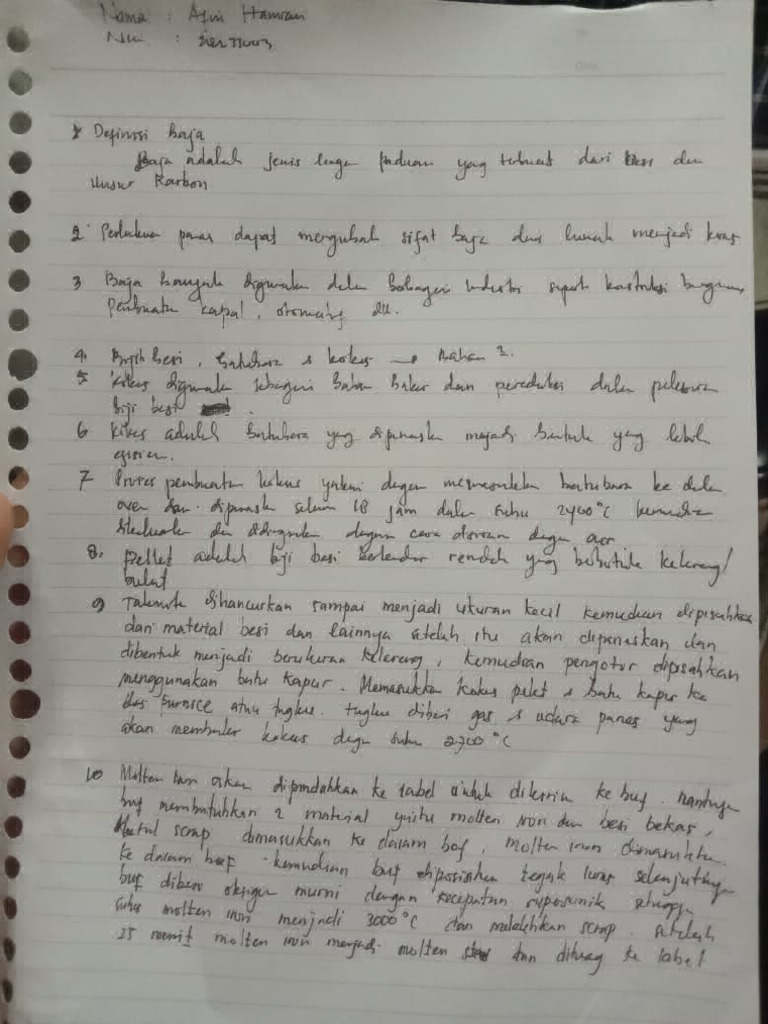 Nama : Afni Hamran
:
1 Definisi baja
Baja adalah jenis logam paduan yang terbuat dari besi dan
Unsur Karbon
2. Perlakuan panas dapat mengubah sifat baja dari lunak menjadi keras
3 Baja banyak digunakan dalam berbagai industri seperti konstruksi bangunan
Pembuatan kapal, otomotif dll.
4. Bijih besi, batubara & kokas → Bahan 2.
5 Kokas digunakan sebagai bahan bakar dan pereduksi dalam peleburan
biji besi
6 Kokas adalah batubara yang dipanaskan menjadi bentuk yang lebih
efisien.
7 Proses pembuatan kokas yakni dengan memasukkan batubara ke dalam
oven dan dipanaskan selama 18 jam dalam suhu 2400°C kemudian
dikeluarkan dan didinginkan dengan cara disiram dengan air
8. pellet adalah biji besi berkadar rendah yang berbentuk kelereng/
bulat
9 Takonite dihancurkan sampai menjadi ukuran kecil kemudian dipisahkan
dari material besi dan lainnya setelah itu akan dipanaskan dan
dibentuk menjadi berukuran kelereng, kemudian pengotor dipisahkan
menggunakan batu kapur. Memasukkan kokas pelet & batu kapur ke
furnice atau tungku. tungku diberi gas & udara panas yang
akan membakar kokas dengan suhu 2700 °C
10 Molten iron akan dipindahkan ke label untuk dikirim ke bof. nantinya
bof membutuhkan 2 material yaitu molten iron dan besi bekas,
Metal scrap dimasukkan ke dalam bof, molten iron dimasukkan
ke dalam bof kemudian bof diposisikan tegak lurus selanjutnya
bof diberi oksigen murni dengan kecepatan supersonik sehingga
suhu molten iron menjadi 3000°C dan melelehkan scrap. setelah
25 menit molten iron menjadi molten steel dan dituang ke label